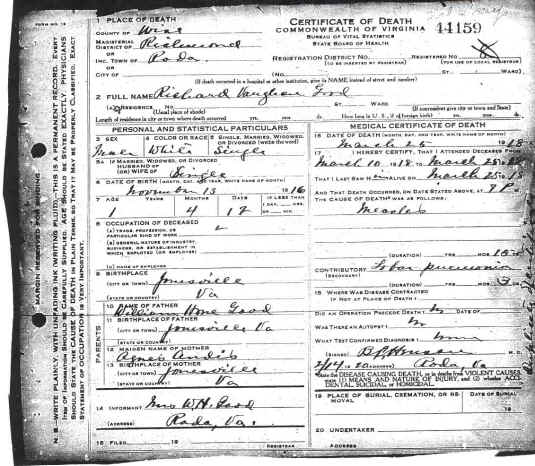 FORM NO. 12
1 PLACE OF DEATH
COUNTY OF Wise
MAGISTERIAL
DISTRICT OF Richmond
OR
INC. TOWN OF Roda
OR
CITY OF
CERTIFICATE OF DEATH
COMMONWEALTH OF VIRGINIA
BUREAU OF VITAL STATISTICS
STATE BOARD OF HEALTH
44159
REGISTRATION DISTRICT NO.
(TO BE INSERTED BY REGISTRAR)
REGISTERED NO.
(FOR USE OF LOCAL REGISTRAR)
(No. ST. WARD)
(If death occurred in a hospital or other institution, give its NAME instead of street and number)
2 FULL NAME Richard Vaughan Good
(a) RESIDENCE No. ST. WARD
(Usual place of abode)
(If nonresident give city or town and State)
Length of residence in city or town where death occurred yrs. mos. ds.
How long in U. S., if of foreign birth? yrs. mos. ds.
PERSONAL AND STATISTICAL PARTICULARS
3 SEX
4 COLOR OR RACE
5 SINGLE, MARRIED, WIDOWED, OR DIVORCED (write the word)
Male White Single
5a IF MARRIED, WIDOWED, OR DIVORCED
HUSBAND OF
(OR) WIFE OF Single
6 DATE OF BIRTH (MONTH, DAY, AND YEAR, WRITE NAME OF MONTH)
November 13 1916
7 AGE YEARS MONTHS DAYS IF LESS THAN
1 4 12
8 OCCUPATION OF DECEASED
(a) TRADE, PROFESSION, OR
PARTICULAR KIND OF WORK
(b) GENERAL NATURE OF INDUSTRY,
BUSINESS, OR ESTABLISHMENT IN
WHICH EMPLOYED (OR EMPLOYER)
(c) NAME OF EMPLOYER
9 BIRTHPLACE
(CITY OR TOWN) Jonesville
(STATE OR COUNTRY) Va
PARENTS
10 NAME OF FATHER
William Good
11 BIRTHPLACE OF FATHER
(CITY OR TOWN) Jonesville Va
(STATE OR COUNTRY)
12 MAIDEN NAME OF MOTHER
Agnes Andis
13 BIRTHPLACE OF MOTHER
(CITY OR TOWN) Jonesville
(STATE OR COUNTRY) Va
14 INFORMANT Mrs W H Good
(ADDRESS) Roda, Va.
15 FILED 19
REGISTRAR
MEDICAL CERTIFICATE OF DEATH
16 DATE OF DEATH (MONTH, DAY, AND YEAR, WRITE NAME OF MONTH)
March 26 1918
17 I HEREBY CERTIFY, THAT I ATTENDED DECEASED FROM
March 10 1918 March 25
THAT I LAST SAW H ALIVE ON March 25
AND THAT DEATH OCCURRED, ON DATE STATED ABOVE, AT 9 P.
THE CAUSE OF DEATH WAS AS FOLLOWS:
Measles
(DURATION) YRS. MOS. 15
CONTRIBUTORY Lobar pneumonia
(SECONDARY)
(DURATION) YRS. MOS. 3
18 WHERE WAS DISEASE CONTRACTED
IF NOT AT PLACE OF DEATH?
DID AN OPERATION PRECEDE DEATH? No DATE OF
WAS THERE AN AUTOPSY? No
WHAT TEST CONFIRMED DIAGNOSIS?
(SIGNED)
(ADDRESS) Roda Va
State the DISEASE CAUSING DEATH, or in deaths from VIOLENT CAUSES, state (1) MEANS AND NATURE OF INJURY, and (2) whether ACCIDENTAL, SUICIDAL, or HOMICIDAL.
19 PLACE OF BURIAL, CREMATION, OR REMOVAL
DATE OF BURIAL
19
20 UNDERTAKER
ADDRESS
MARGIN RESERVED FOR BINDING
N. B.—WRITE PLAINLY, WITH UNFADING INK (WRITING FLUID). THIS IS A PERMANENT RECORD. EVERY
ITEM OF INFORMATION SHOULD BE CAREFULLY SUPPLIED. AGE SHOULD BE STATED EXACTLY. PHYSICIANS
SHOULD STATE THE CAUSE OF DEATH IN PLAIN TERMS, SO THAT IT MAY BE PROPERLY CLASSIFIED. EXACT
STATEMENT OF OCCUPATION IS VERY IMPORTANT.